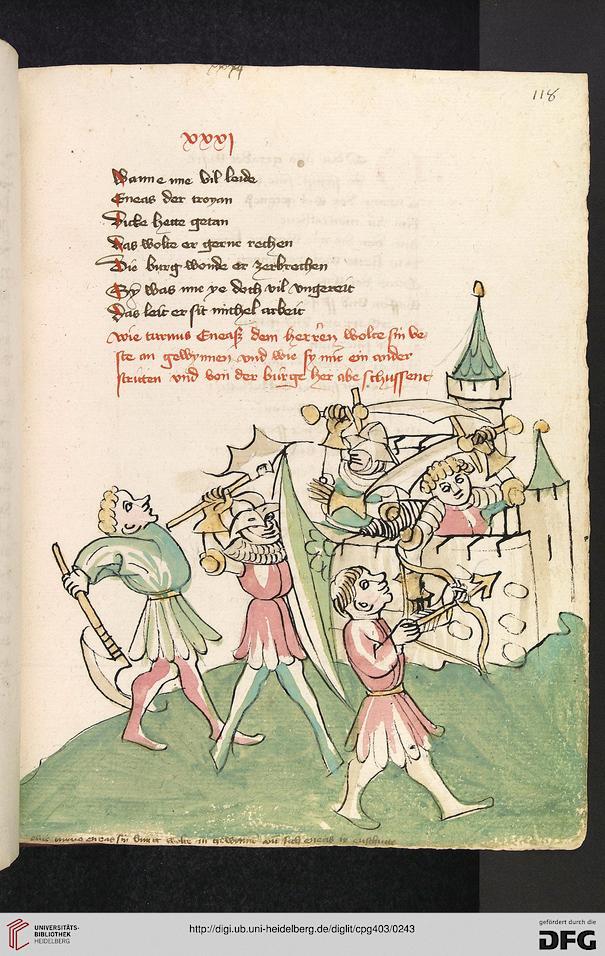 118
xxxj
Wanne ime vil leide
Eneas der troyan
Dicke hette getan
Das wolte er gerne rechen
Die burg wonde er zerbrechen
Sÿ was ime ye doch vil ungereit
Das leit er sit michel arbeit
wie turnus Eneasz dem herren wolte sin ve-
ste an gewynnen und wie sy mit ein ander
stritten und von der burge her abe schussent
turnus eneas sin burg wolte an gewynnen
UNIVERSITÄTS-
BIBLIOTHEK
HEIDELBERG
http://digi.ub.uni-heidelberg.de/diglit/cpg403/0243
gefördert durch die
DFG